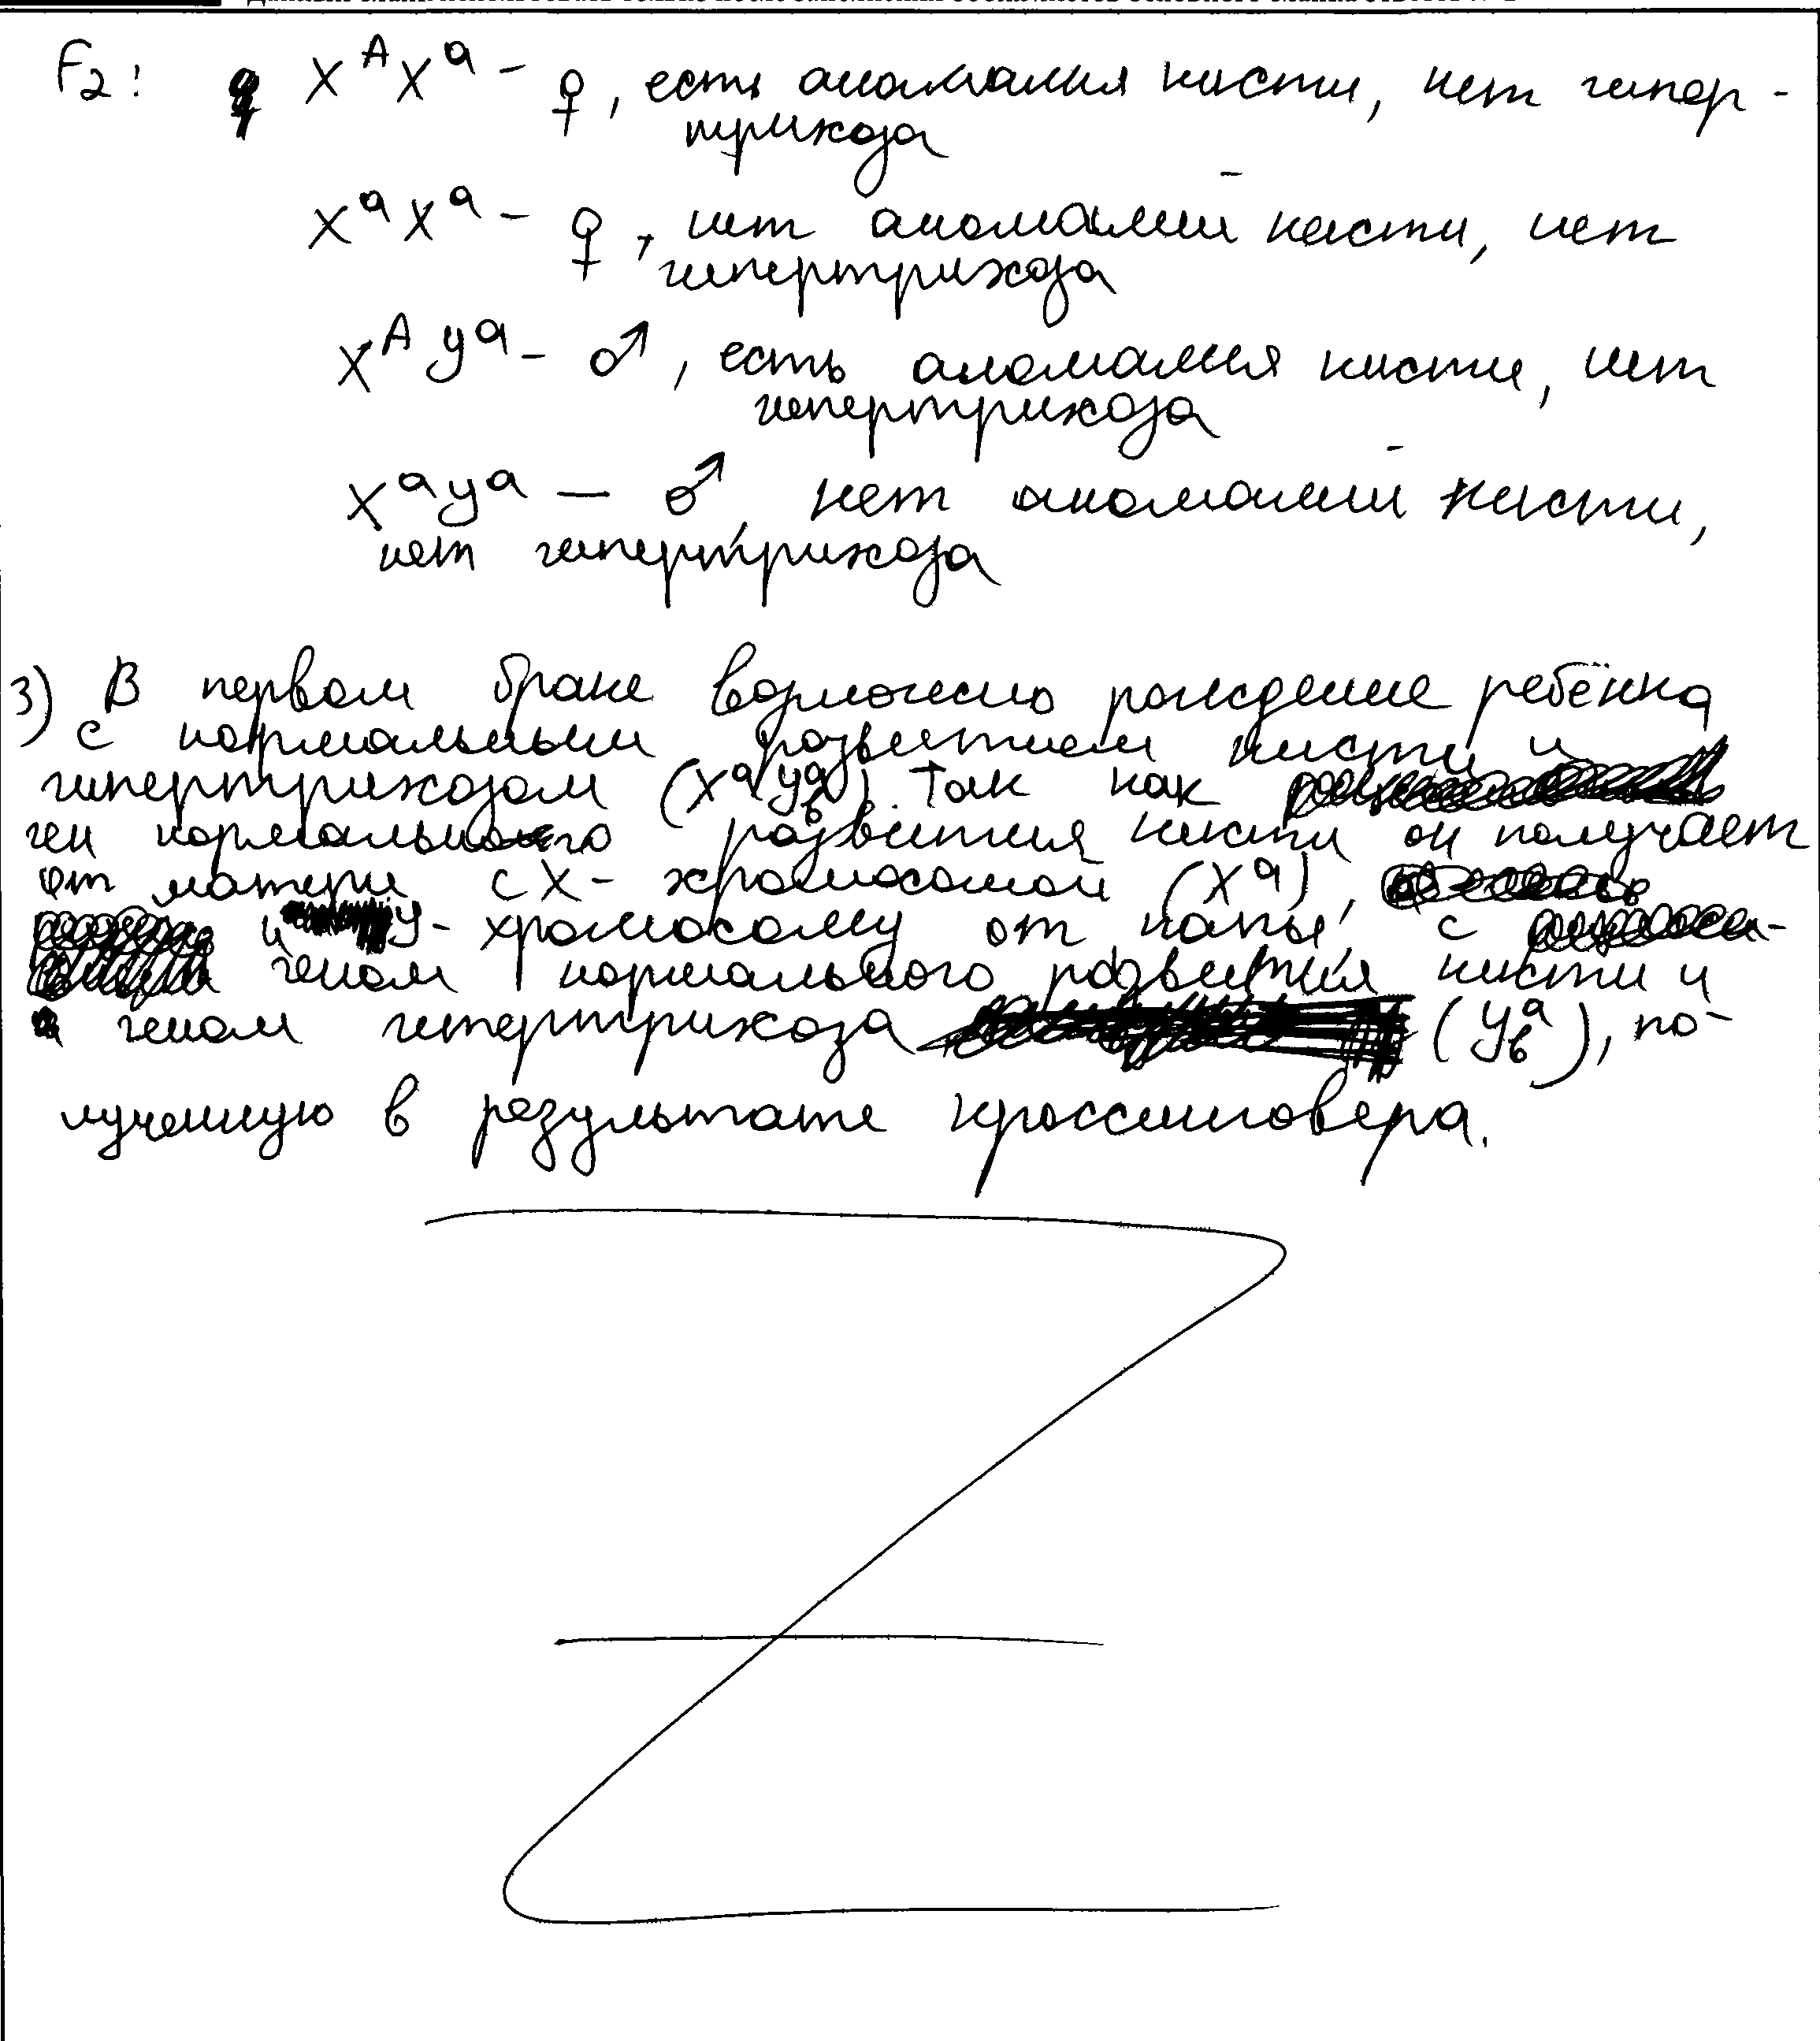 F2: X^A X^a - ♀, есть аномалия кисти, нет гипер-
трихоза
X^a X^a - ♀, нет аномалии кисти, нет
гипертрихоза
X^A y^a - ♂, есть аномалия кисти, нет
гипертрихоза
X^a y^a - ♂, нет аномалии кисти,
нет гипертрихоза
3) В первом браке возможно рождение ребёнка
с нормальным развитием кисти и
гипертрихозом (X^a y^a_b). Так как
ген нормального развития кисти он получает
от матери с X-хромосомой (X^a),
и y-хромосому от папы, с
геном нормального развития кисти и
геном гипертрихоза (y^a_b), по-
лученную в результате кроссинговера.